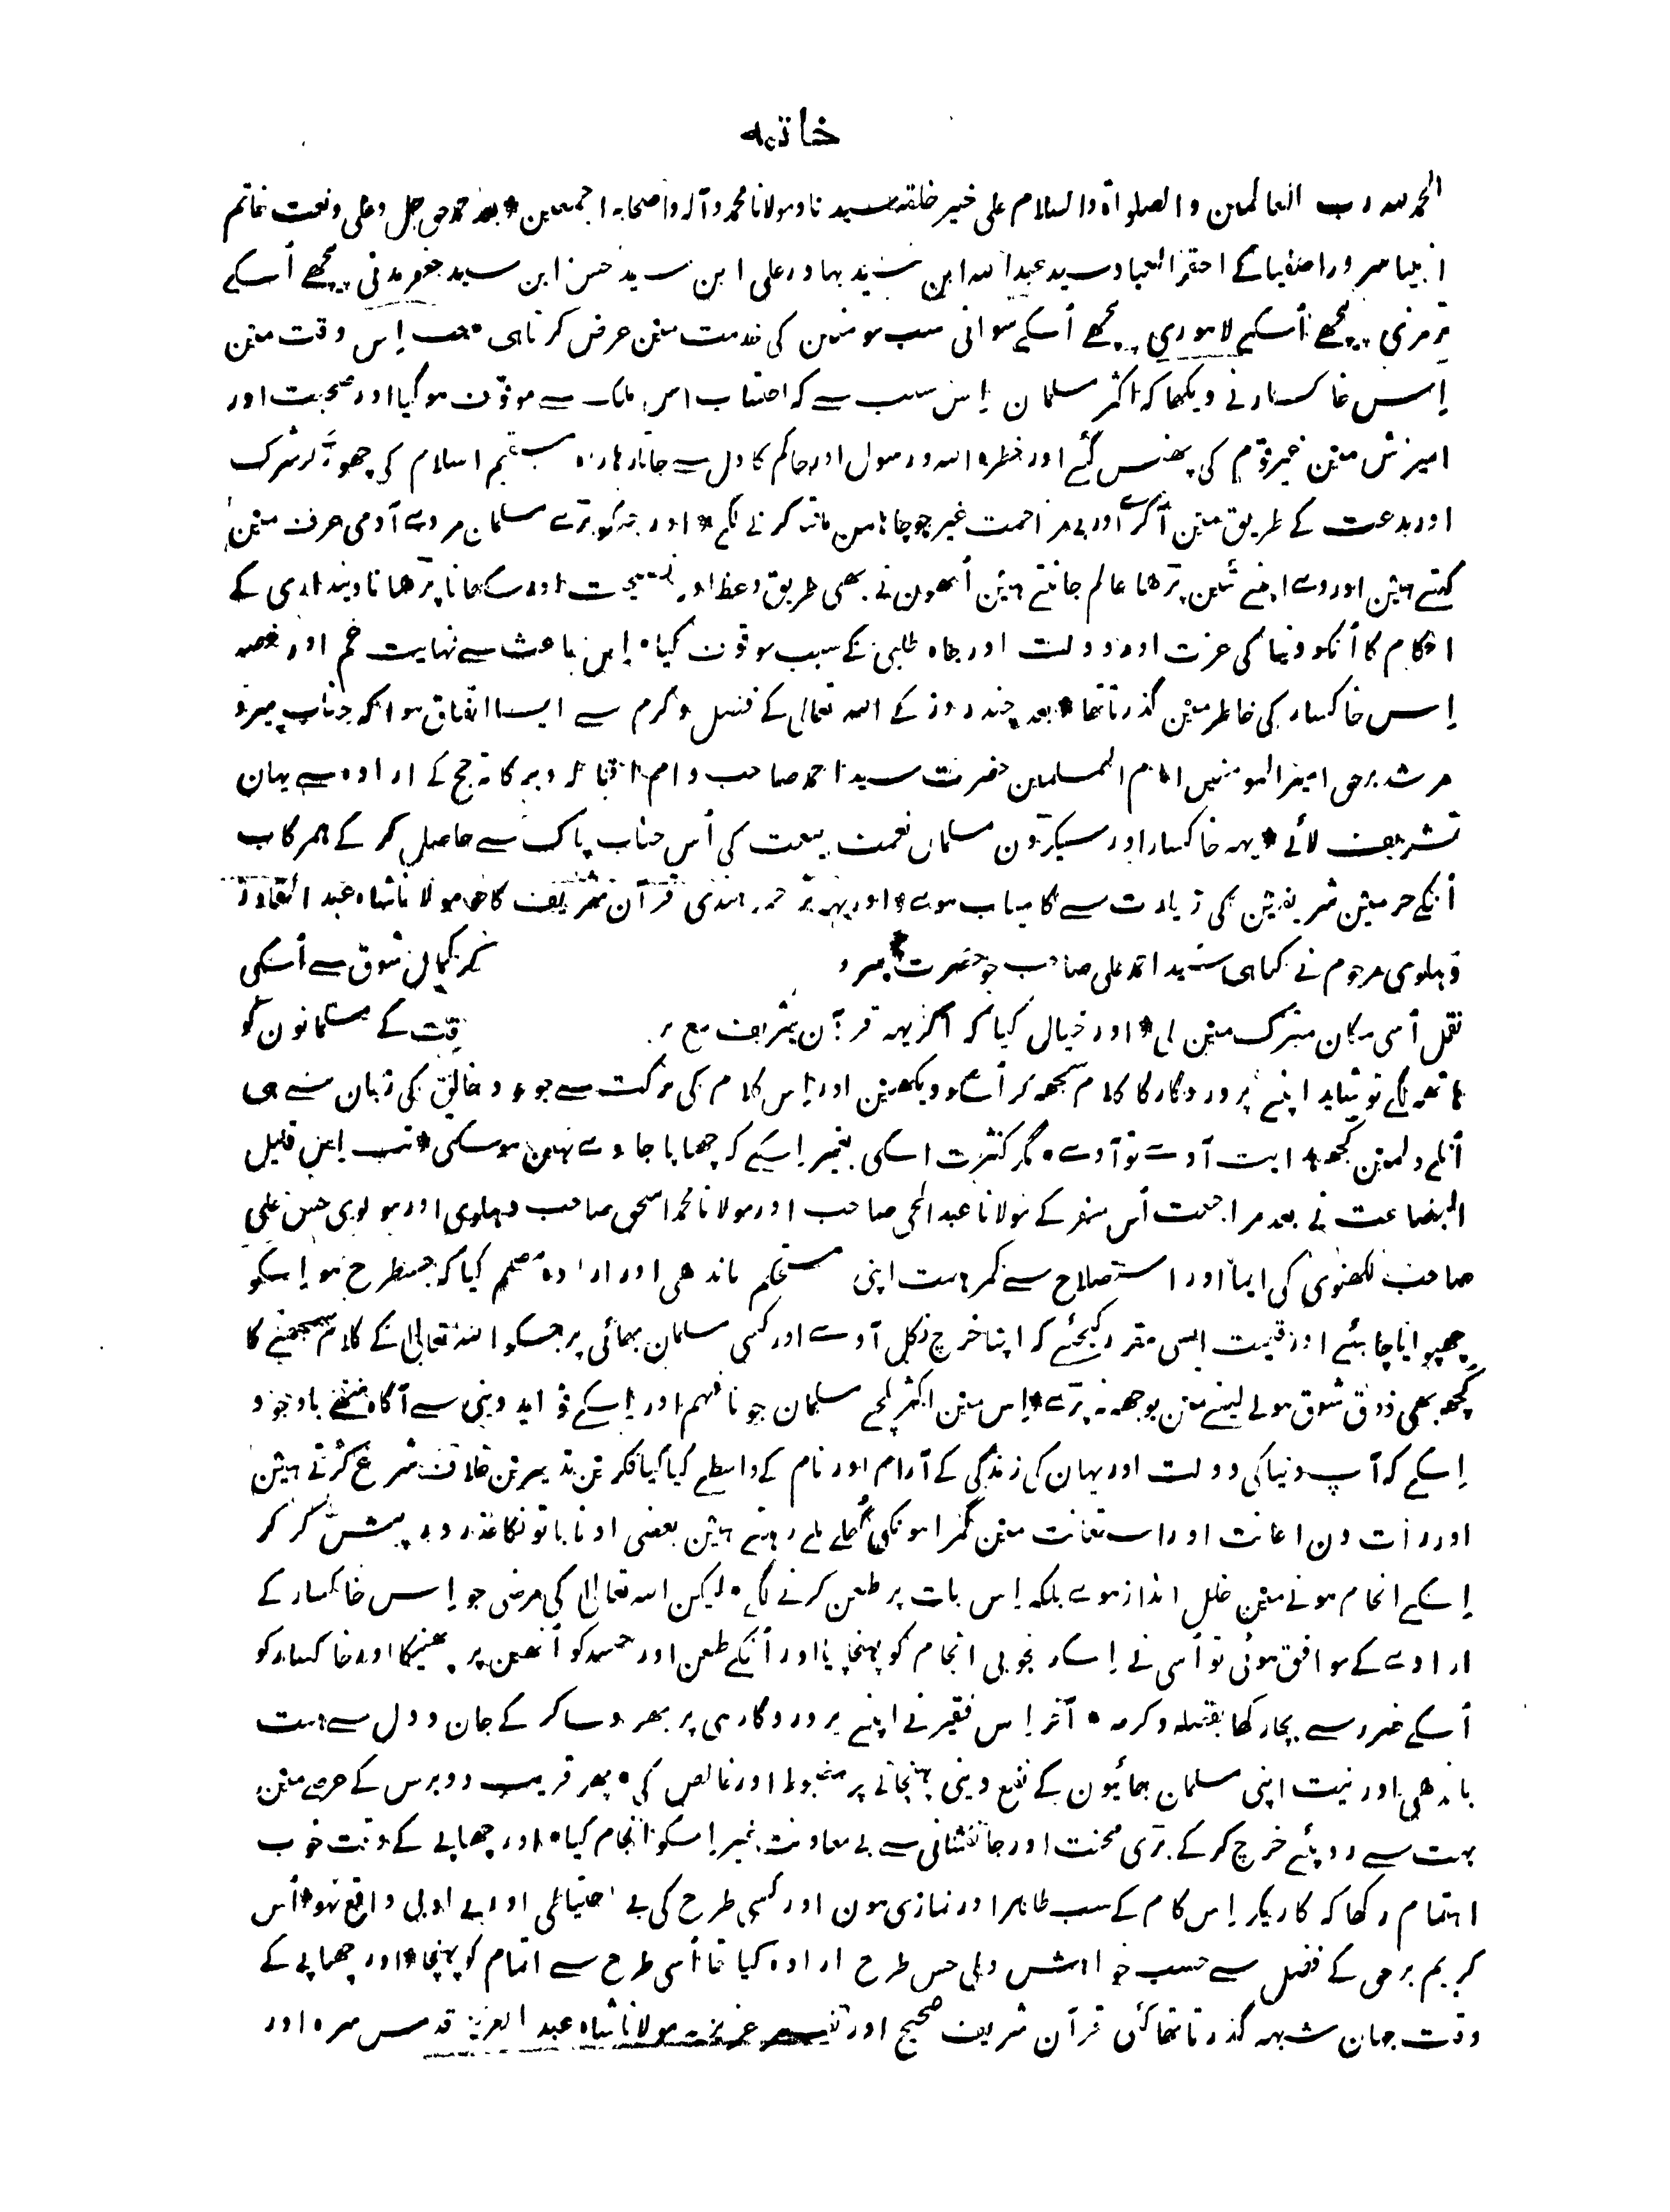 خاتمہ
الحمد للہ رب العالمین و الصلواة والسلام علی خیر خلقہ سیدنا ومولانا محمد وآلہ واصحابہ اجمعین * بعد حمد حق جل وعلی ونعت خاتم
انبیا سرور اصفیا کے احقر العباد سید عبد اللہ ابن سید بہادر علی ابن سید حسن ابن سید جعفر مدنی پیچھے اُسکے
ترمذی پیچھے اُسکے لاہوری پیچھے اُسکے سوانی سب مومنین کی خدمت مین عرض کرتا ہی * جب اِس وقت مین
اِس خاکسار نے دیکھا کہ اکثر مسلمان اِس سبب سے کہ احتساب اس ملک سے موقوف ہو گیا اور صحبت اور
امیزش مین غیر قوم کی پھنس گئے اور خطرہ اللہ و رسول اور حاکم کا دل سے جاتا رہا راہ مستقیم اسلام کی چھوڑ کر شرک
اور بدعت کے طریق مین آ کرے اور بے مزاحمت غیر جو چاہا سو کرنے لگے * اور جنکو بڑے مسلمان مردے آدمی عرف مین
کہتے ہین اور وے اپنے تئین پڑھا عالم جانتے ہین اُنھون نے بھی طریق وعظ اور نصیحت اور سکھانا پڑھانا دینداری کے
احکام کا اُنکو دنیا کی عزت اور دولت اور جاہ طلبی کے سبب موقوف کیا * اِس باعث سے نہایت غم اور غصہ
اِس خاکسار کی خاطر مین گذرتا تھا * بعد چند روز کے اللہ تعالی کے فضل و کرم سے ایسا اتفاق ہوا کہ جناب پیر و
مرشد برحق امیر المومنین امام المسلمین حضرت سید احمد صاحب دام اقبالہ و برکاتہ حج کے ارادہ سے یہان
تشریف لائے * یہہ خاکسار اور سیکڑون مسلمان نعمت بیعت کی اُس جناب پاک سے حاصل کر کے ہمرکاب
اُنکے حرمین شریفین کی زیارت سے کامیاب ہوے * اور یہہ ترجمہ ہندی قرآن شریف کا جو مولانا شاہ عبد القادر
دہلوی مرحوم نے کیا ہی سید احمد علی صاحب جو حضرت پیر و کر کمال شوق سے اُسکی
نقل اُسی مکان متبرک مین لی * اور خیال کیا کہ اگر یہہ قرآن شریف مع قت کے مسلمانون کو
ہاتھہ لگے تو شاید اپنے پروردگار کا کلام سمجھہ کر اُسکو دیکھین اور اِس کلام کی برکت سے جو خالق کی زبان سے ہی
اُنکے دلمین کچھہ ہدایت آوے تو آوے * مگر کثرت اسکی بغیر اِسکے کہ چھاپا جاوے نہین ہو سکتی * تب اِس قلیل
البضاعت نے بعد مراجعت اُس سفر کے مولانا عبد الحی صاحب اور مولانا محمد اسحق صاحب دہلوی اور مولوی حسن علی
صاحب لکھنوی کی ایما اور استصلاح سے کمر ہمت اپنی مستحکم باندھی اور ارادہ مصمم کیا کہ جسطرح ہو اِسکو
چھپوایا چاہئے اور قیمت ایسی مقرر کیجئے کہ اپنا خرچ نکل آوے اور کسی مسلمان بھائی پر جسکو اللہ تعالی کے کلام سمجھنے کا
کچھہ بھی ذوق شوق ہو لے لینے مین بوجھہ نہ پڑے * اِس مین اکثر ایسے مسلمان جو نا فہم اور اِسکے فواید دینی سے آگاہ نتھے باوجود
اِسکے کہ آپ دنیا کی دولت اور یہان کی زندگی کے آرام اور نام کے واسطے کیا کیا فکرین تدبیرین خلاف شرع کرتے ہین
اور رات دن اعانت اور استعانت مین گمراہونکی گھلے ملے رہتے ہین بعضی ادنا باتونکا عذر و پیش کر کر
اِسکے انجام ہونے مین خلل انداز ہوے بلکہ اِس بات پر طعن کرنے لگے * لیکن اللہ تعالی کی مرضی جو اِس خاکسار کے
ارادے کے موافق ہوئی تو اُسی نے اِسکو بخوبی انجام کو پہنچایا اور اُنکے طعن اور حسد کو اُنھین پر پھینکا اور خاکسار کو
اُسکے ضرر سے بچا رکھا بفضلہ و کرمہ * آخر اِس فقیر نے اپنے پروردگار ہی پر بھروسا کر کے جان و دل سے ہمت
باندھی اور نیت اپنی مسلمان بھائیون کے نفع دینی پہنچانے پر مضبوط اور خالص کی * پھر قریب دو برس کے عرصے مین
بہت سے روپئے خرچ کر کے بڑی محنت اور جانفشانی سے بے معاونت غیر اِسکو انجام کیا * اور چھاپے کے وقت خوب
اہتمام رکھا کہ کاریگر اِس کام کے سب طاہر اور نمازی ہون اور کسی طرح کی بے احتیاطی اور بے ادبی واقع نہو * اُس
کریم برحق کے فضل سے حسب خواہش دلی جس طرح ارادہ کیا تھا اُسی طرح سے اتمام کو پہنچا * اور چھاپے کے
وقت جہان شبہہ گذرتا تھا کئی قرآن شریف صحیح اور تفسیر عزیزیہ مولانا شاہ عبد العزیز قدس سرہ اور